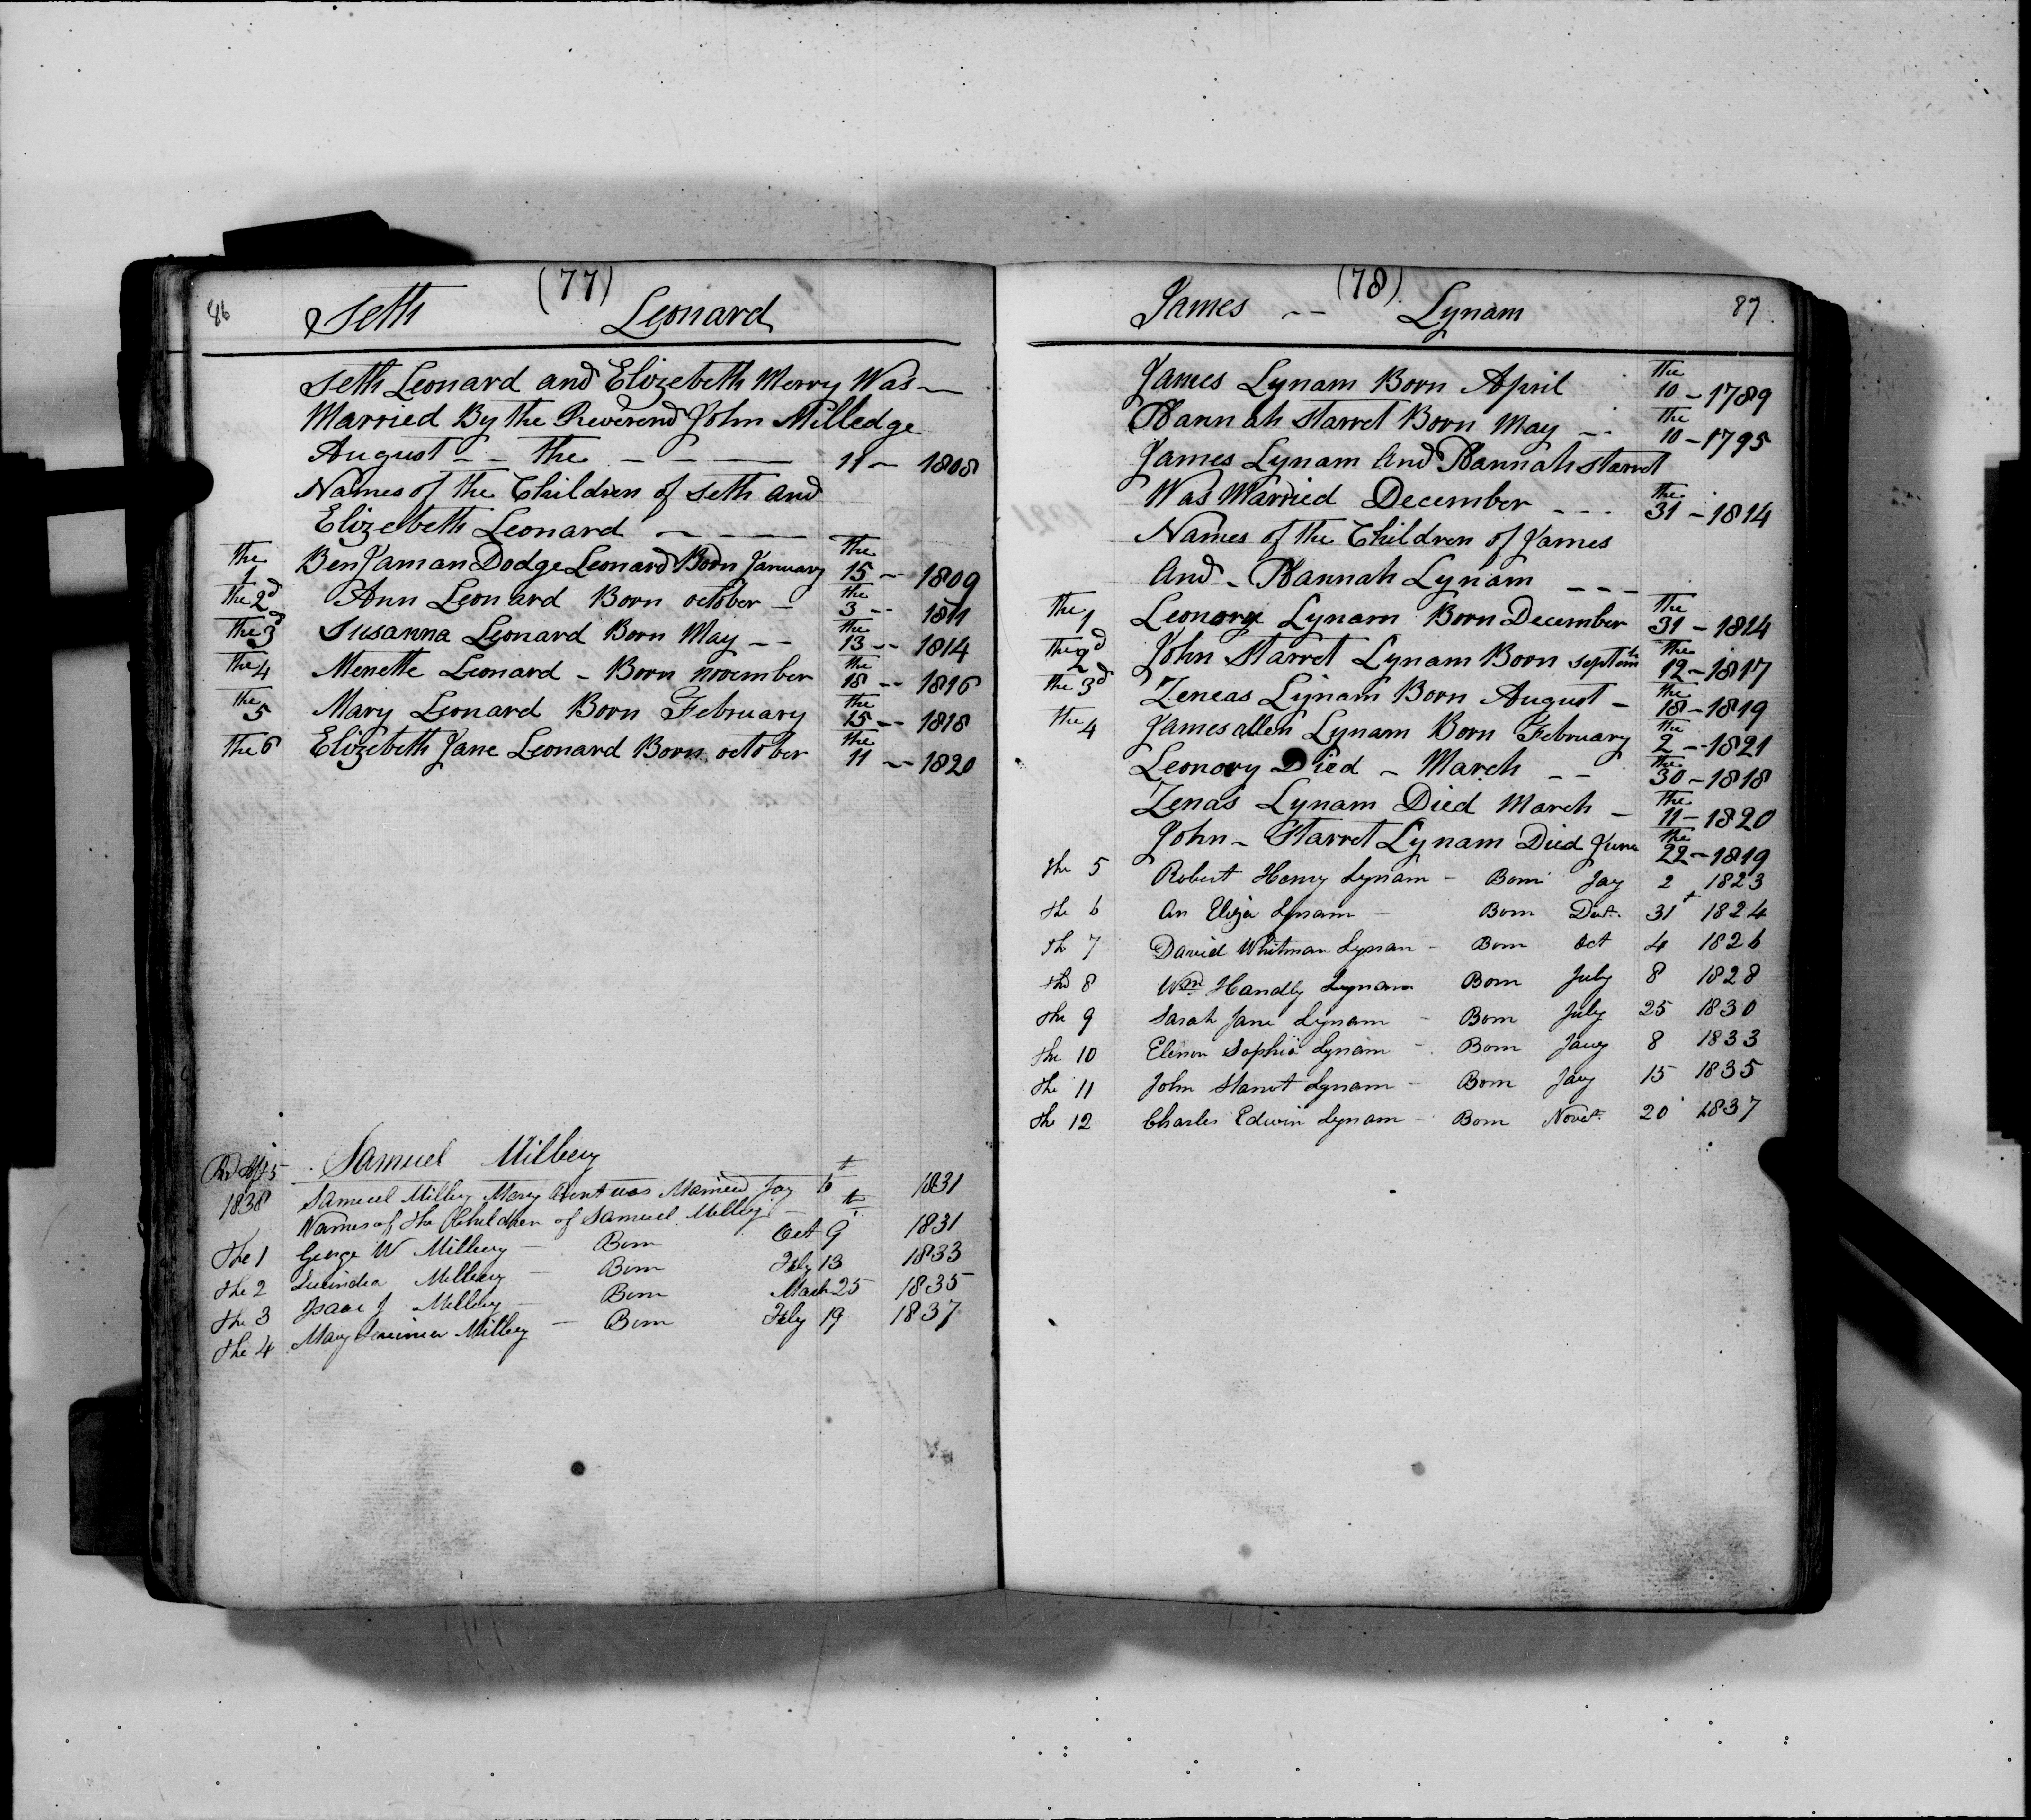 86 (77)
Seth Leonard
Seth Leonard and Elizebeth Merry Was
Married By the Reverend John Milledge
August - - the - - - 11 - 1808
Names of the Children of Seth and
Elizebeth Leonard - - - -
the 1 BenJaman Dodge Leonard Born January the 15 - 1809
the 2d Ann Leonard Born october - the 3 - - 1811
the 3d Susanna Leonard Born May - - the 13 - - 1814
the 4 Menette Leonard - Born november the 18 - - 1816
the 5 Mary Leonard Born February the 15 - - 1818
the 6 Elizebeth Jane Leonard Born october the 11 - - 1820
Samuel Milbery
1838 Samuel Milbery Mary was Married Jay 6 1831
Names of the Children of Samuel Milbery
the 1 George W Milbery - Born Oct 9 1831
the 2 Lucindia Milbery - Born Feby 13 1833
the 3 Isaac J Milbery - Born March 25 1835
the 4 Mary Milbery - Born Feby 19 1837
(78) 87
James - - Lynam
James Lynam Born April the 10 - 1789
Hannah Starret Born May - - the 10 - 1795
James Lynam And Hannah Starret
Was Married December - - - the 31 - 1814
Names of the Children of James
And - Hannah Lynam - - -
the 1 Leonora Lynam Born December the 31 - 1814
the 2d John Starret Lynam Born Septem the 12 - 1817
the 3d Zeneas Lynam Born August - the 18 - 1819
the 4 James allen Lynam Born February the 2 - - 1821
Leonory Died - March - - the 30 - 1818
Zenas Lynam Died March - the 11 - 1820
John - Starret Lynam Died June the 22 - 1819
the 5 Robert Henry Lynam - Born Jay 2 1823
the 6 An Eliza Lynam - Born 31 1824
th 7 David Whitman Lynam - Born Oct 4 1826
the 8 Wm Handly Lynam Born July 8 1828
the 9 Sarah Jane Lynam - Born July 25 1830
the 10 Elenor Sophia Lynam - Born Jany 8 1833
the 11 John Starrot Lynam - Born Jay 15 1835
the 12 Charles Edwin Lynam - Born Novet. 20 1837